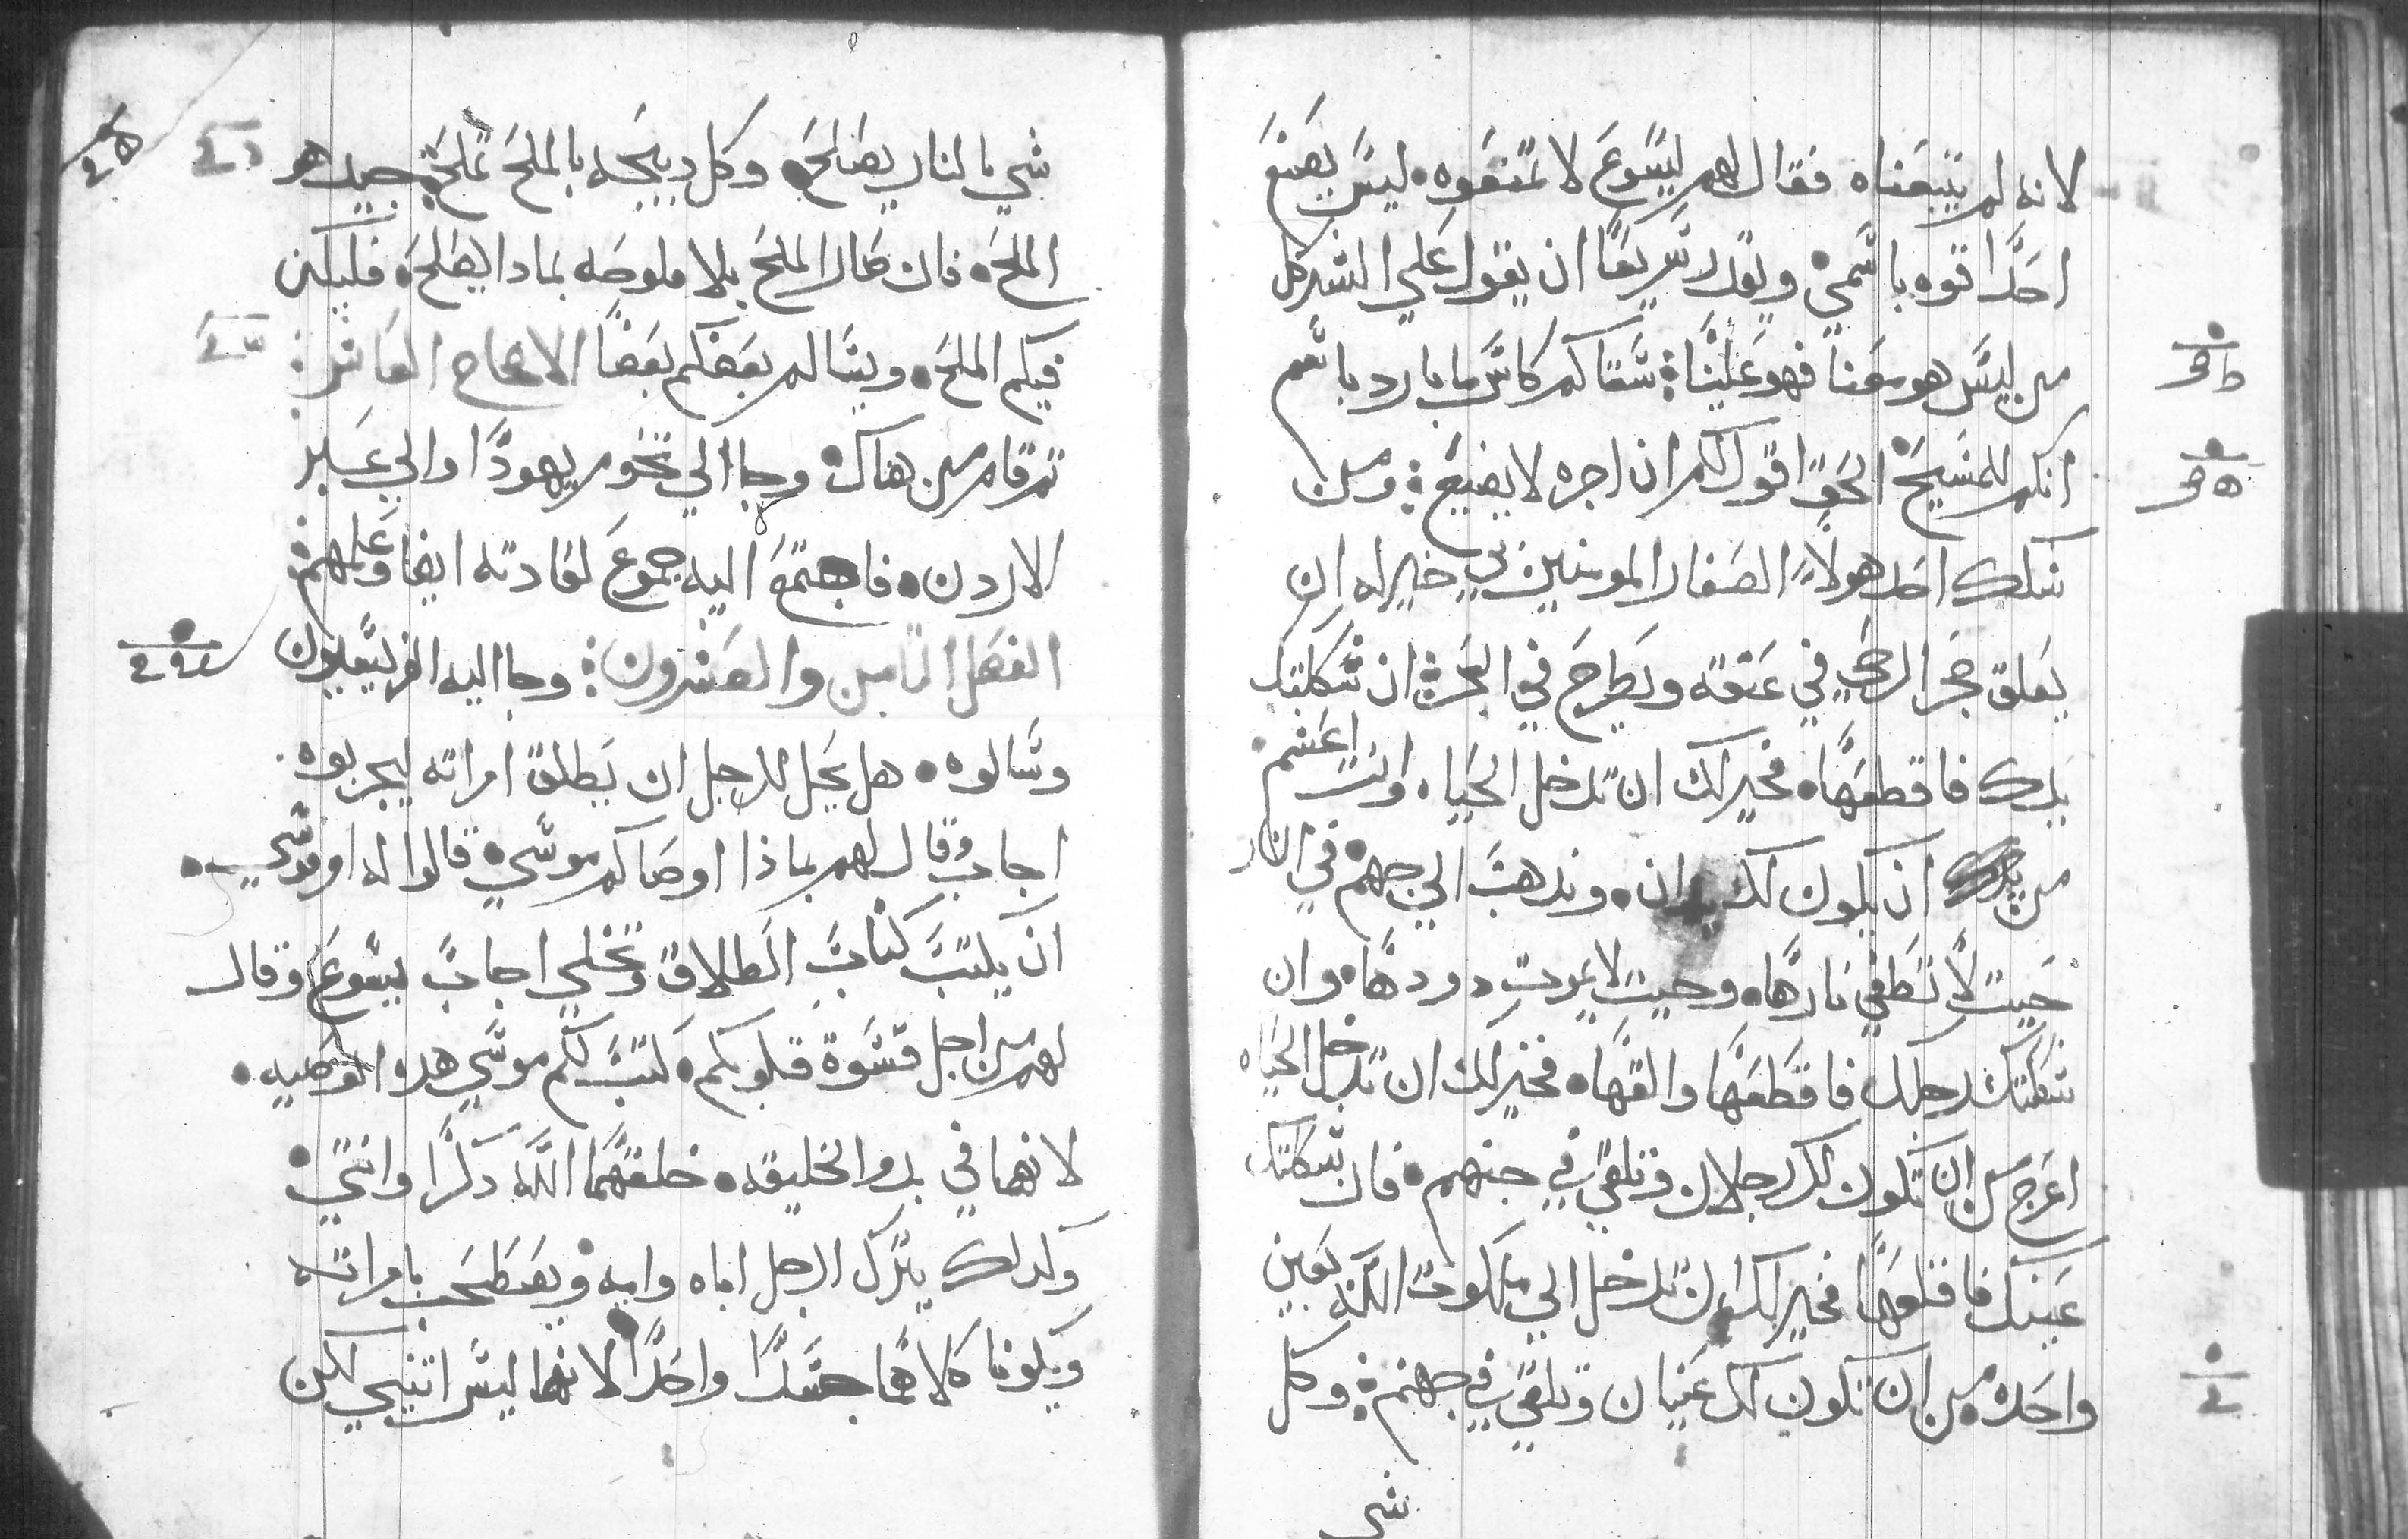 لانه لم يتبعناه فقال لهم ليسوع لا تمنعوه ليس يصنع
احدا قوه باسمي ويقدر سريعا ان يقول علي الشر كل
من ليس هو معنا فهو علينا سقاكم كاس ما بارد باسم
انكم للمسيح الحق اقول لكم ان اجره لا يضيع ومن
شكك احد هولا الصغار المومنين بي خير له ان
يعلق حجر الرحي في عنقه ويطرح في البحر ان شككتك
يدك فاقطعها فخير لك ان تدخل الحياه وانت اعسم
من ان يكون لك يدان وتدهب الي جهنم في النار
حيت لا تطفي نارها وحيت لا يموت دودها وان
شككتك رجلك فاقطعها والقها فخير لك ان تدخل الحياه
اعرج من ان تكون لك رجلان وتلقي في جنهم فان شككتك
عينك فاقلعها فخير لك ان تدخل الي ملكوت الله بعين
واحده من ان تكون لك عنيان وتلقي في جهنم وكل
شي
شي بالنار يصالح وكل دبيحه بالملح تملح جيد هو
الملح فان صار الملح بلا ملوحه بمادا يصلح فليكن
فيكم الملح ويسالم بعضكم بعضا الاصحاح العاشر
تم قام من هناك وجا الي تخوم يهودا والي عبر
الاردن فاجتمع اليه جموع لعادته ايضا وعلمهم
الفصل التامن والعشرون وجا اليه الفريسيون
وسالوه هل يحل للرجل ان يطلق امراته ليجربوه
اجاب وقال لهم بماذا اوصاكم موسي قالوا له امر موسي
ان يكتب كتاب الطلاق وتخلي اجاب يسوع وقال
لهم من اجل قسوة قلوبكم كتب لكم موسي هده الوصيه
لانهما في بدو الخليقه خلقهما الله دكرا وانتي
ولدلك يترك الرجل اباه وامه ويصطحب بامراته
ويكونا كلاهما جسدا واحدا لانهما ليس اتنين لكن